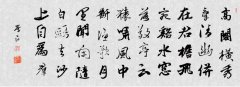 高閣橫秀
氣清幽併
在君檐飛
宛溪水窓
落敬亭云
猿嘯風中
斷漁歌月
里聞閑隨
白鷗去沙
上自為群